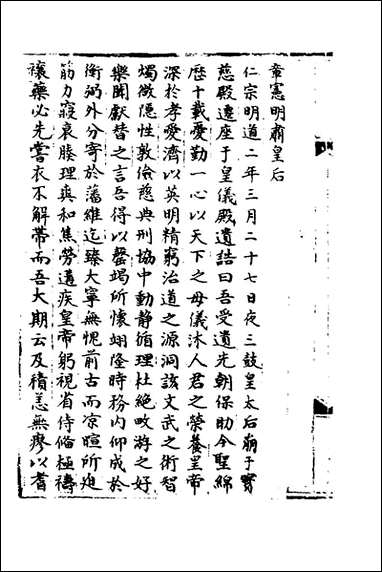 章憲明肅皇后
仁宗明道二年三月二十七日夜三鼓皇太后崩于寶
慈殿遷座于皇儀殿遺誥曰吾受遺先朝保助令聖綿
歷十載憂勤一心以天下之母儀沐人君之榮養皇帝
深於孝愛濟以英明精窮治道之源洞該文武之術智
燭微隱性敦儉慈典刑協中動靜循理杜絕畋游之好
樂聞獻替之言吾得以罄竭所懷翊隆時務內仰成於
衡弼外分寄於藩維迄臻大寧無愧前古而凉暄所迫
筋力寖衰腠理爽和焦勞遘疾皇帝躬視省侍偹極禱
禳藥必先嘗衣不解帶而吾大期云及積恙無瘳以耆